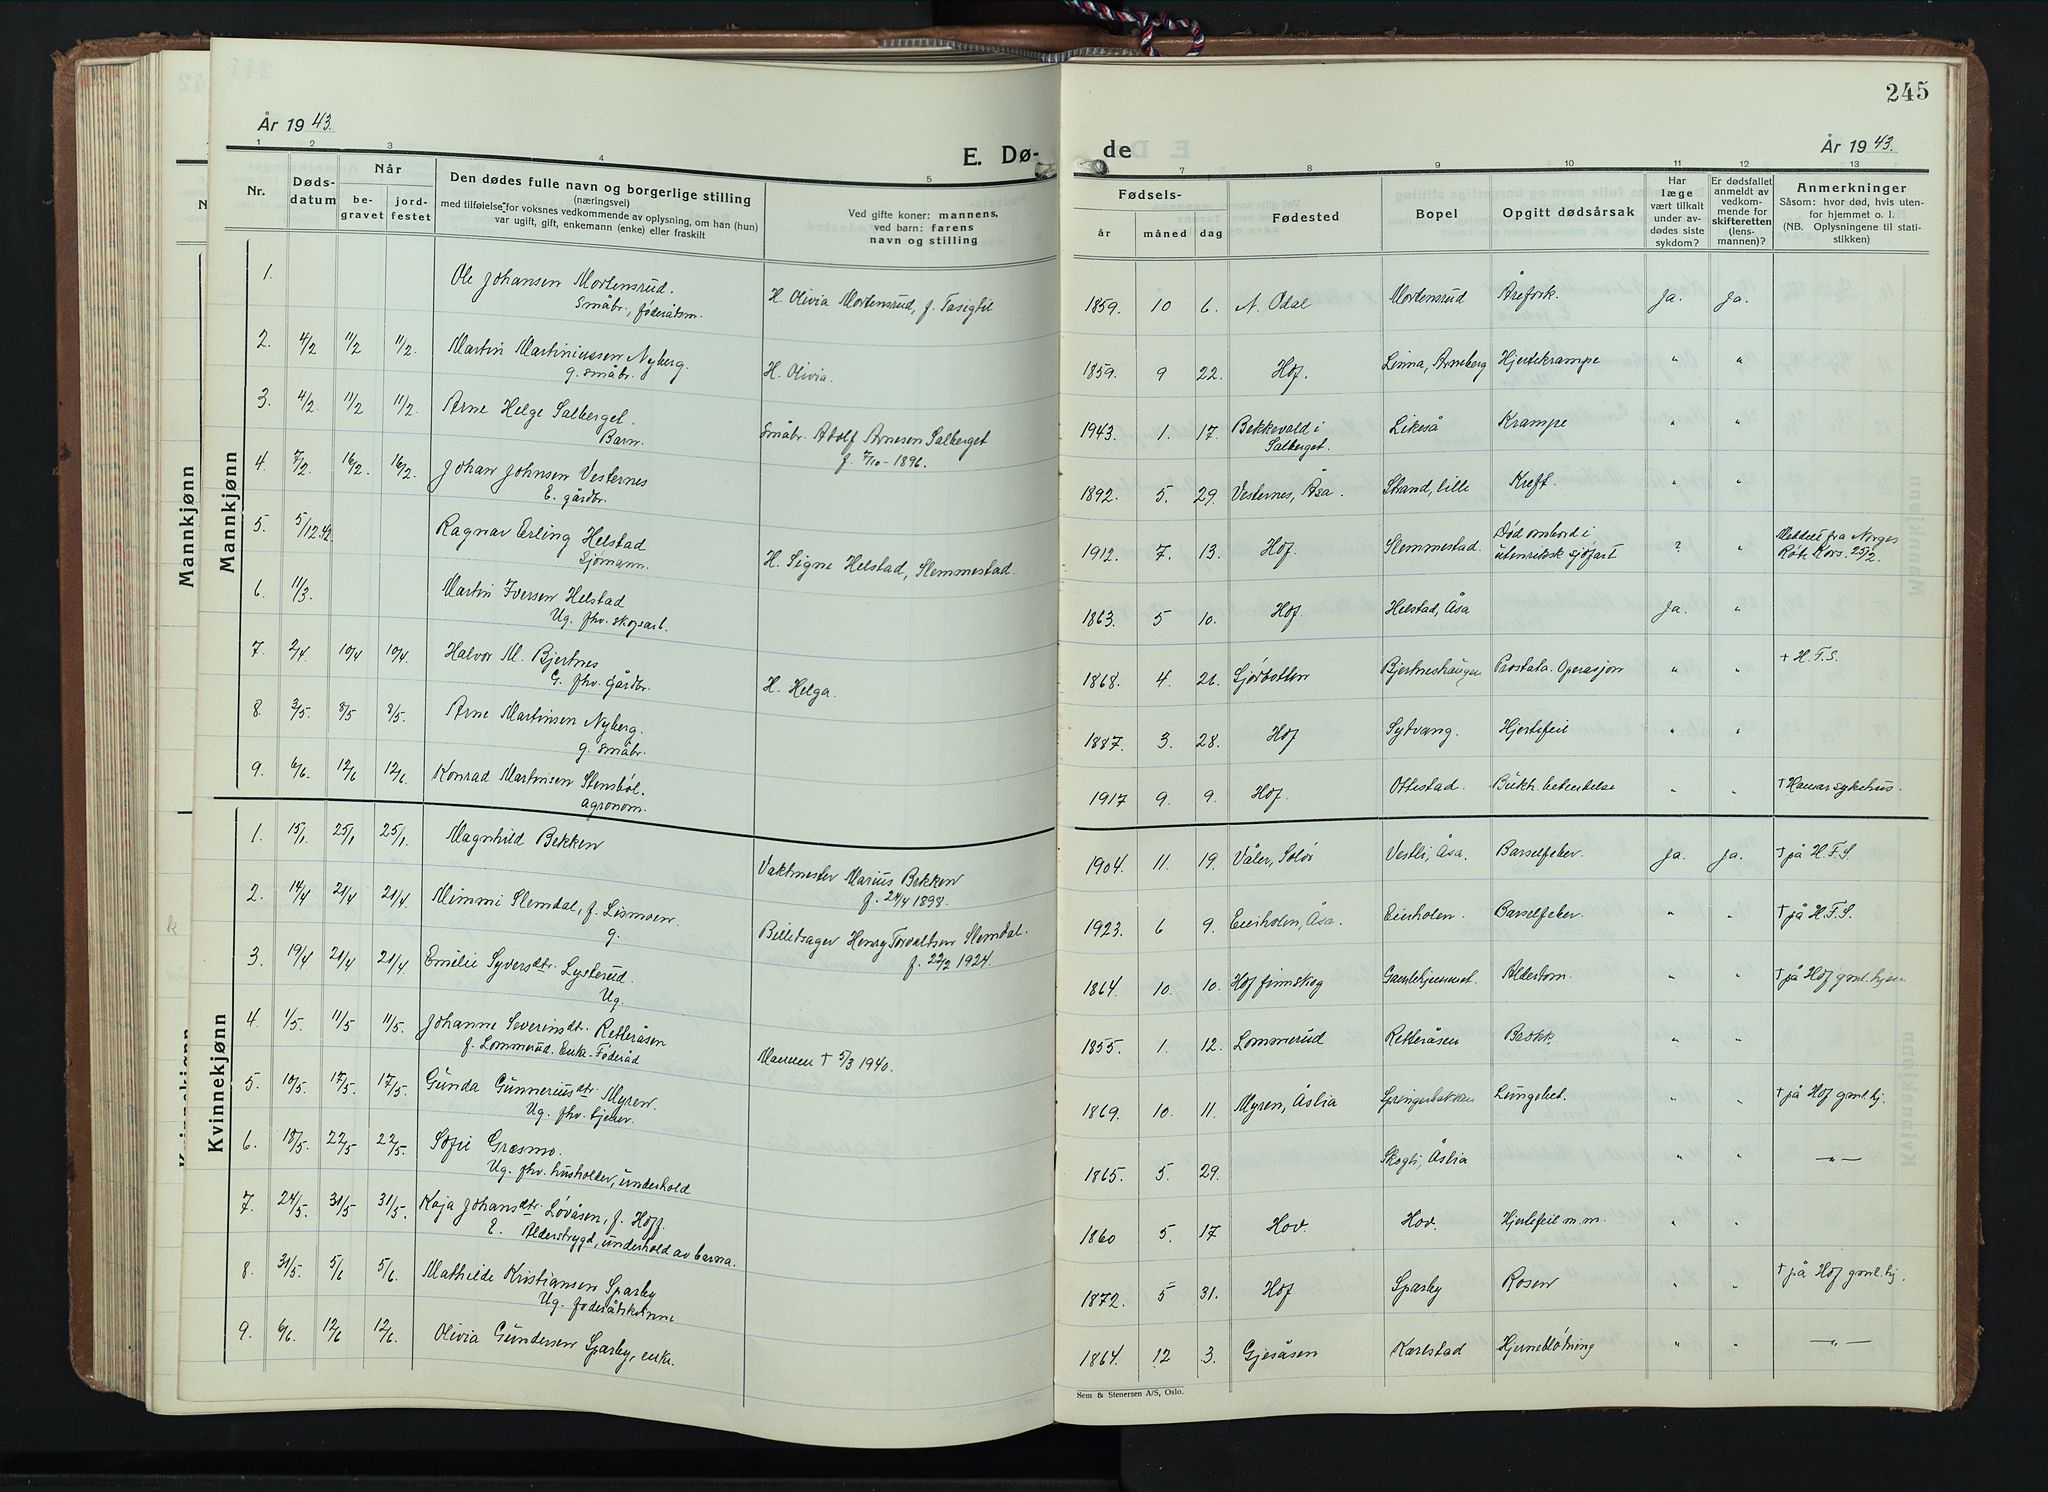 245
År 1943.
E. Dø-
de
År 1943.
1 2 3 4 5 7 8 9 10 11 12 13
Nr.
Døds-
datum
Når
be-
gravet
jord-
festet
Den dødes fulle navn og borgerlige stilling
(næringsvei)
med tilføielse for voksnes vedkommende av oplysning, om han (hun)
var ugift, gift, enkemann (enke) eller fraskilt
Ved gifte koner: mannens,
ved barn: farens
navn og stilling
Fødsels-
år måned dag
Fødested
Bopel
Opgitt dødsårsak
Har
læge
vært tilkalt
under av-
dødes siste
sykdom?
Er dødsfallet
anmeldt av
vedkom-
mende for
skifteretten
(lens-
mannen)?
Anmerkninger
Såsom: hvor død, hvis uten-
for hjemmet o. l.
(NB. Oplysningene til stati-
stikken)
Mannkjønn
Mannkjønn
1. Ole Johansen Mortensrud.
Småbr., føderåtsm.
H. Olivia Mortensrud, f.
1859. 10 6. N. Odal Mortensrud Årefork. Ja. Ja.
2. 4/2 11/2 11/2. Martin Martiniussen Nyberg.
g. småbr.
H. Olivia.
1859. 9 22. Hof. Linna, Arneberg Hjertekrampe " "
3. 4/2. 11/2 11/2. Arne Helge Salberget.
Barn.
Småbr. Adolf Arnesen Salberget
f. 7/10-1896.
1943. 1. 17. Bekkevold i
Salberget.
Likeså Krampe " "
4. 7/2. 16/2. 16/2. Johan Johnsen Vesternes
E. gårdbr.
1892. 5. 29. Vesternes, Åsa. Strand, lille Kreft. " "
5. 5/12.42. Ragnar Erling Helstad
Sjømann.
H. Signe Helstad, Slemmestad.
1912. 7. 13. Hof. Slemmestad. Død ombord i
utenriksk sjøfart
? " Meddelt fra Norges
Røde Kors. 25/2.
6. 11/3. Martin Iversen Helstad
Ug. fhv. skogsarb.
1863. 5 10. Hof. Helstad, Åsa Ja. "
7. 2/4. 10/4 10/4. Halvor M. Bjertnes
G. fhv. gårdbr.
H. Helga.
1868. 4. 21. Gjørbotten Bjertneshaugen Prostata. Operasjon " " † H.F.S.
8. 3/5. 8/5 8/5. Arne Martinsen Nyberg.
g. småbr.
1887. 3. 28. Hof Sytvang. Hjertefeil " "
9. 6/6. 12/6 12/6. Konrad Martinsen Stensbøl.
agronom.
1917 9. 9. Hof. Ottestad. Bukh. betendelse " " † Hamar sykehus.
Kvinnekjønn
Kvinnekjønn
1. 15/1. 25/1 25/1. Magnhild Bekken
Vaktmester Marius Bekken
f. 24/4 1898.
1904. 11 19. Våler, Solør Vestli, Åsa. Barselfeber. Ja. Ja. † på H.F.S.
2. 14/4 21/4 21/4. Mimmi Slemdal, f. Lismoen.
g.
Billedsager Henry Torvaldsen Slemdal.
f. 22/2 1924.
1923. 6 9. Eidsholen, Åsa. Eidsholen. Barselfeber. " " † på H.F.S.
3. 19/4 21/4 21/4. Emilie Syversdtr. Lysterud.
Ug.
1864. 10. 10. Hof finnskog Gamlehjemmet. Alderdom. " " † på Hof gml. hjem
4. 1/5. 11/5 11/5. Johanne Severinsdtr. Retteråsen
f. Lommerud. Enke. Føderåd
Mannen † 5/3 1940.
1855. 1. 12. Lommerud Retteråsen Brokk. " "
5. 10/5. 17/5 17/5. Gunda Gunneriusdtr. Myren.
Ug. fhv. tjener.
1869. 10. 11. Myren, Åslia Springerbakken Lungebet. " " † på Hof gml. hj.
6. 18/5. 22/5 22/5. Sofie Græsmo.
Ug. fhv. husholder, underhold
1865. 5. 29. Skogli, Åslia " " —"—
7. 24/5. 31/5 31/5. Kaja Johansdtr. Løvåsen, f. Hoff.
E. Alderstrygd, underhold av barna.
1860 5. 17 Hov. Hov. Hjertefeil m.m. " "
8. 31/5. 5/6 5/6. Mathilde Kristiansen Sparby
Ug. føderåtskvinne
1872. 5 31. Hof Sparby Rosen " " † på Hof gml. hj.
9. 6/6. 12/6 12/6. Olivia Gundersen Sparby, enke.
1864. 12 3. Gjesåsen Karlstad Hjerneblødning " " —"—
Sem & Stenersen A/S, Oslo.